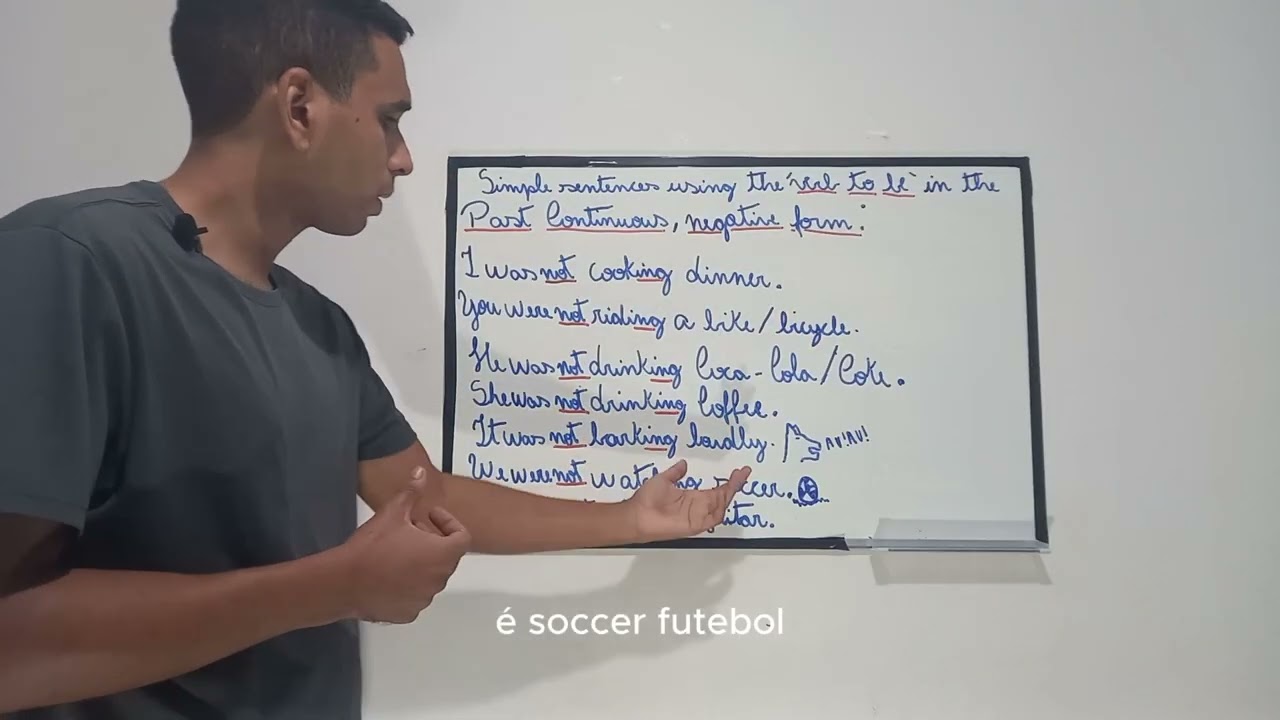 Simple sentences using the "verb to be" in the
Past Continuous, negative form:
I was not cooking dinner.
You were not riding a bike / bicycle.
He was not drinking Coca-Cola / Coke.
She was not drinking Coffee.
It was not barking loudly. AU! AU!
We were not watching soccer.
guitar.
é soccer futebol